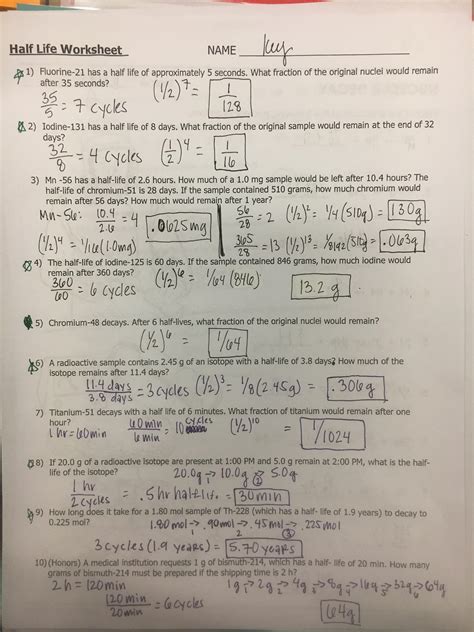 Half Life Worksheet NAME key
1) Fluorine-21 has a half life of approximately 5 seconds. What fraction of the original nuclei would remain
after 35 seconds?
35/5 = 7 cycles (1/2)^7 = 1/128
2) Iodine-131 has a half life of 8 days. What fraction of the original sample would remain at the end of 32
days?
32/8 = 4 cycles (1/2)^4 = 1/16
3) Mn -56 has a half-life of 2.6 hours. How much of a 1.0 mg sample would be left after 10.4 hours? The
half-life of chromium-51 is 28 days. If the sample contained 510 grams, how much chromium would
remain after 56 days? How much would remain after 1 year?
Mn-56: 10.4/2.6 = 4 .0625mg 56/28 = 2 (1/2)^2 = 1/4 (510g) = 130g
(1/2)^4 = 1/16 (1.0mg) 365/28 = 13 (1/2)^13 = 1/8192 (510g) = .063g
4) The half-life of iodine-125 is 60 days. If the sample contained 846 grams, how much iodine would
remain after 360 days?
360/60 = 6 cycles (1/2)^6 = 1/64 (846) 13.2 g
5) Chromium-48 decays. After 6 half-lives, what fraction of the original nuclei would remain?
(1/2)^6 = 1/64
6) A radioactive sample contains 2.45 g of an isotope with a half-life of 3.8 days. How much of the
isotope remains after 11.4 days?
11.4 days/3.8 days = 3 cycles (1/2)^3 = 1/8 (2.45g) = .306g
7) Titanium-51 decays with a half life of 6 minutes. What fraction of titanium would remain after one
hour?
1 hr = 60min 60min/6min = 10 cycles (1/2)^10 = 1/1024
8) If 20.0 g of a radioactive isotope are present at 1:00 PM and 5.0 g remain at 2:00 PM, what is the half-
life of the isotope?
20.0g →1 10.0g →2 5.0g
1 hr/2 cycles = .5 hr half life = 30 min
9) How long does it take for a 1.80 mol sample of Th-228 (which has a half-life of 1.9 years) to decay to
0.225 mol?
1.80 mol → .90 mol → .45 mol → .225 mol
3 cycles (1.9 years) = 5.70 years
10) (Honors) A medical institution requests 1 g of bismuth-214, which has a half- life of 20 min. How many
grams of bismuth-214 must be prepared if the shipping time is 2 h?
2h = 120min 1g →1 2g →2 4g →3 8g →4 16g →5 32g →6 64g
120min/20min = 6 cycles 64g